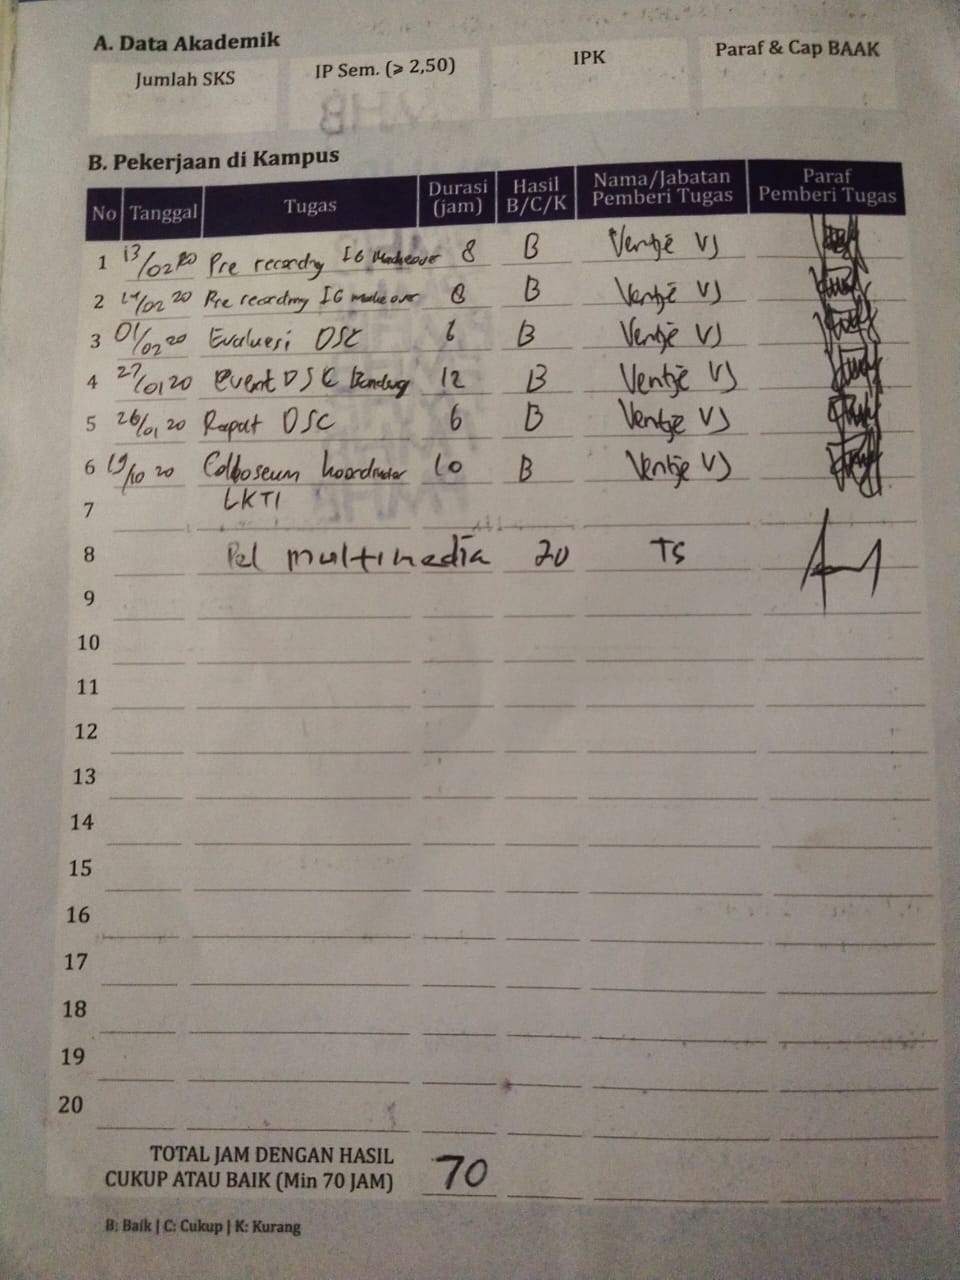 A. Data Akademik
Jumlah SKS IP Sem. (⩾ 2,50) IPK Paraf & Cap BAAK
B. Pekerjaan di Kampus
No Tanggal Tugas Durasi (jam) Hasil B/C/K Nama/Jabatan Pemberi Tugas Paraf Pemberi Tugas
1 13/02 20 Pre recording IG Makeover 8 B Ventje VJ
2 14/02 20 Pre recording IG makeover 8 B Ventje VJ
3 01/02 20 Evaluasi DSC 6 B Ventje VJ
4 27/01 20 event DSC Bandung 12 B Ventje VJ
5 26/01 20 Rapat DSC 6 B Ventje VJ
6 19/10 20 koordinator 10 B Ventje VJ
7 LKTI
8 Pel multimedia 20 TS
9
10
11
12
13
14
15
16
17
18
19
20
TOTAL JAM DENGAN HASIL
CUKUP ATAU BAIK (Min 70 JAM) 70
B: Baik | C: Cukup | K: Kurang